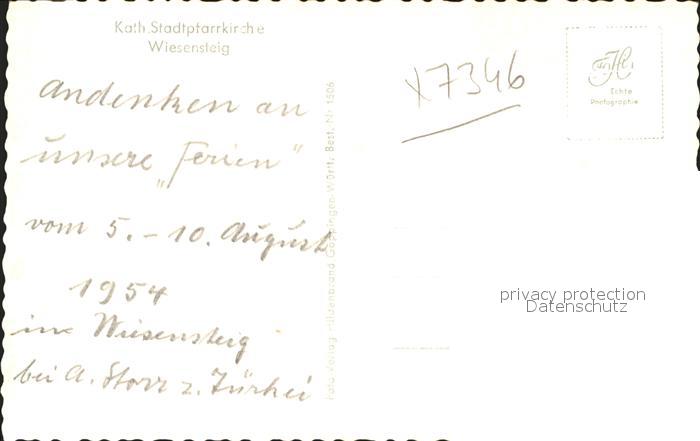 Kath. Stadtpfarrkirche
Wiesensteig
Andenken an
unsere „Ferien"
vom 5. - 10. August
1954
in Wiesensteig
bei A. Storr z. Türkei
Foto Verlag Hildenbrand Göppingen-Württ. Best. Nr. 1506
x7346
Echte
Photographie
privacy protection
Datenschutz